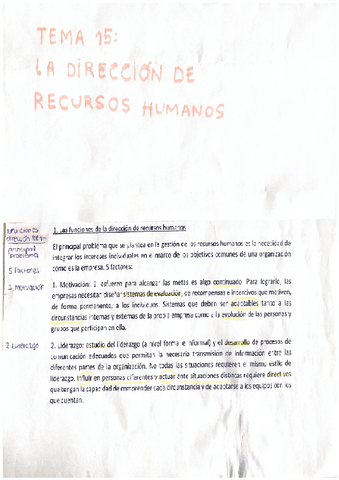 TEMA 15:
LA DIRECCIÓN DE
RECURSOS HUMANOS
1. Las funciones de la dirección de recursos humanos
El principal problema que se plantea en la gestión de los recursos humanos es la necesidad de
integrar los intereses individuales en el marco de los objetivos comunes de una organización
como es la empresa. 5 factores:
1. Motivación: El esfuerzo para alcanzar las metas es algo continuado. Para lograrlo, las
empresas necesitan diseñar sistemas de evaluación, de recompensas e incentivos que motiven,
de forma permanente, a los individuos. Sistemas que deben ser adaptables tanto a las
circunstancias internas y externas de la propia empresa como a la evolución de las personas y
grupos que participan en ella.
2. Liderazgo: estudio del liderazgo (a nivel formal e informal) y el desarrollo de procesos de
comunicación adecuados que permitan la necesaria transmisión de información entre las
diferentes partes de la organización. No todas las situaciones requieren el mismo estilo de
liderazgo. Influir en personas diferentes y actuar ante situaciones distintas requiere directivos
que tengan la capacidad de comprender cada circunstancia y de adaptarse a los equipos con los
que cuentan.
principal
problema
5 factores
1. Motivación
2. Liderazgo